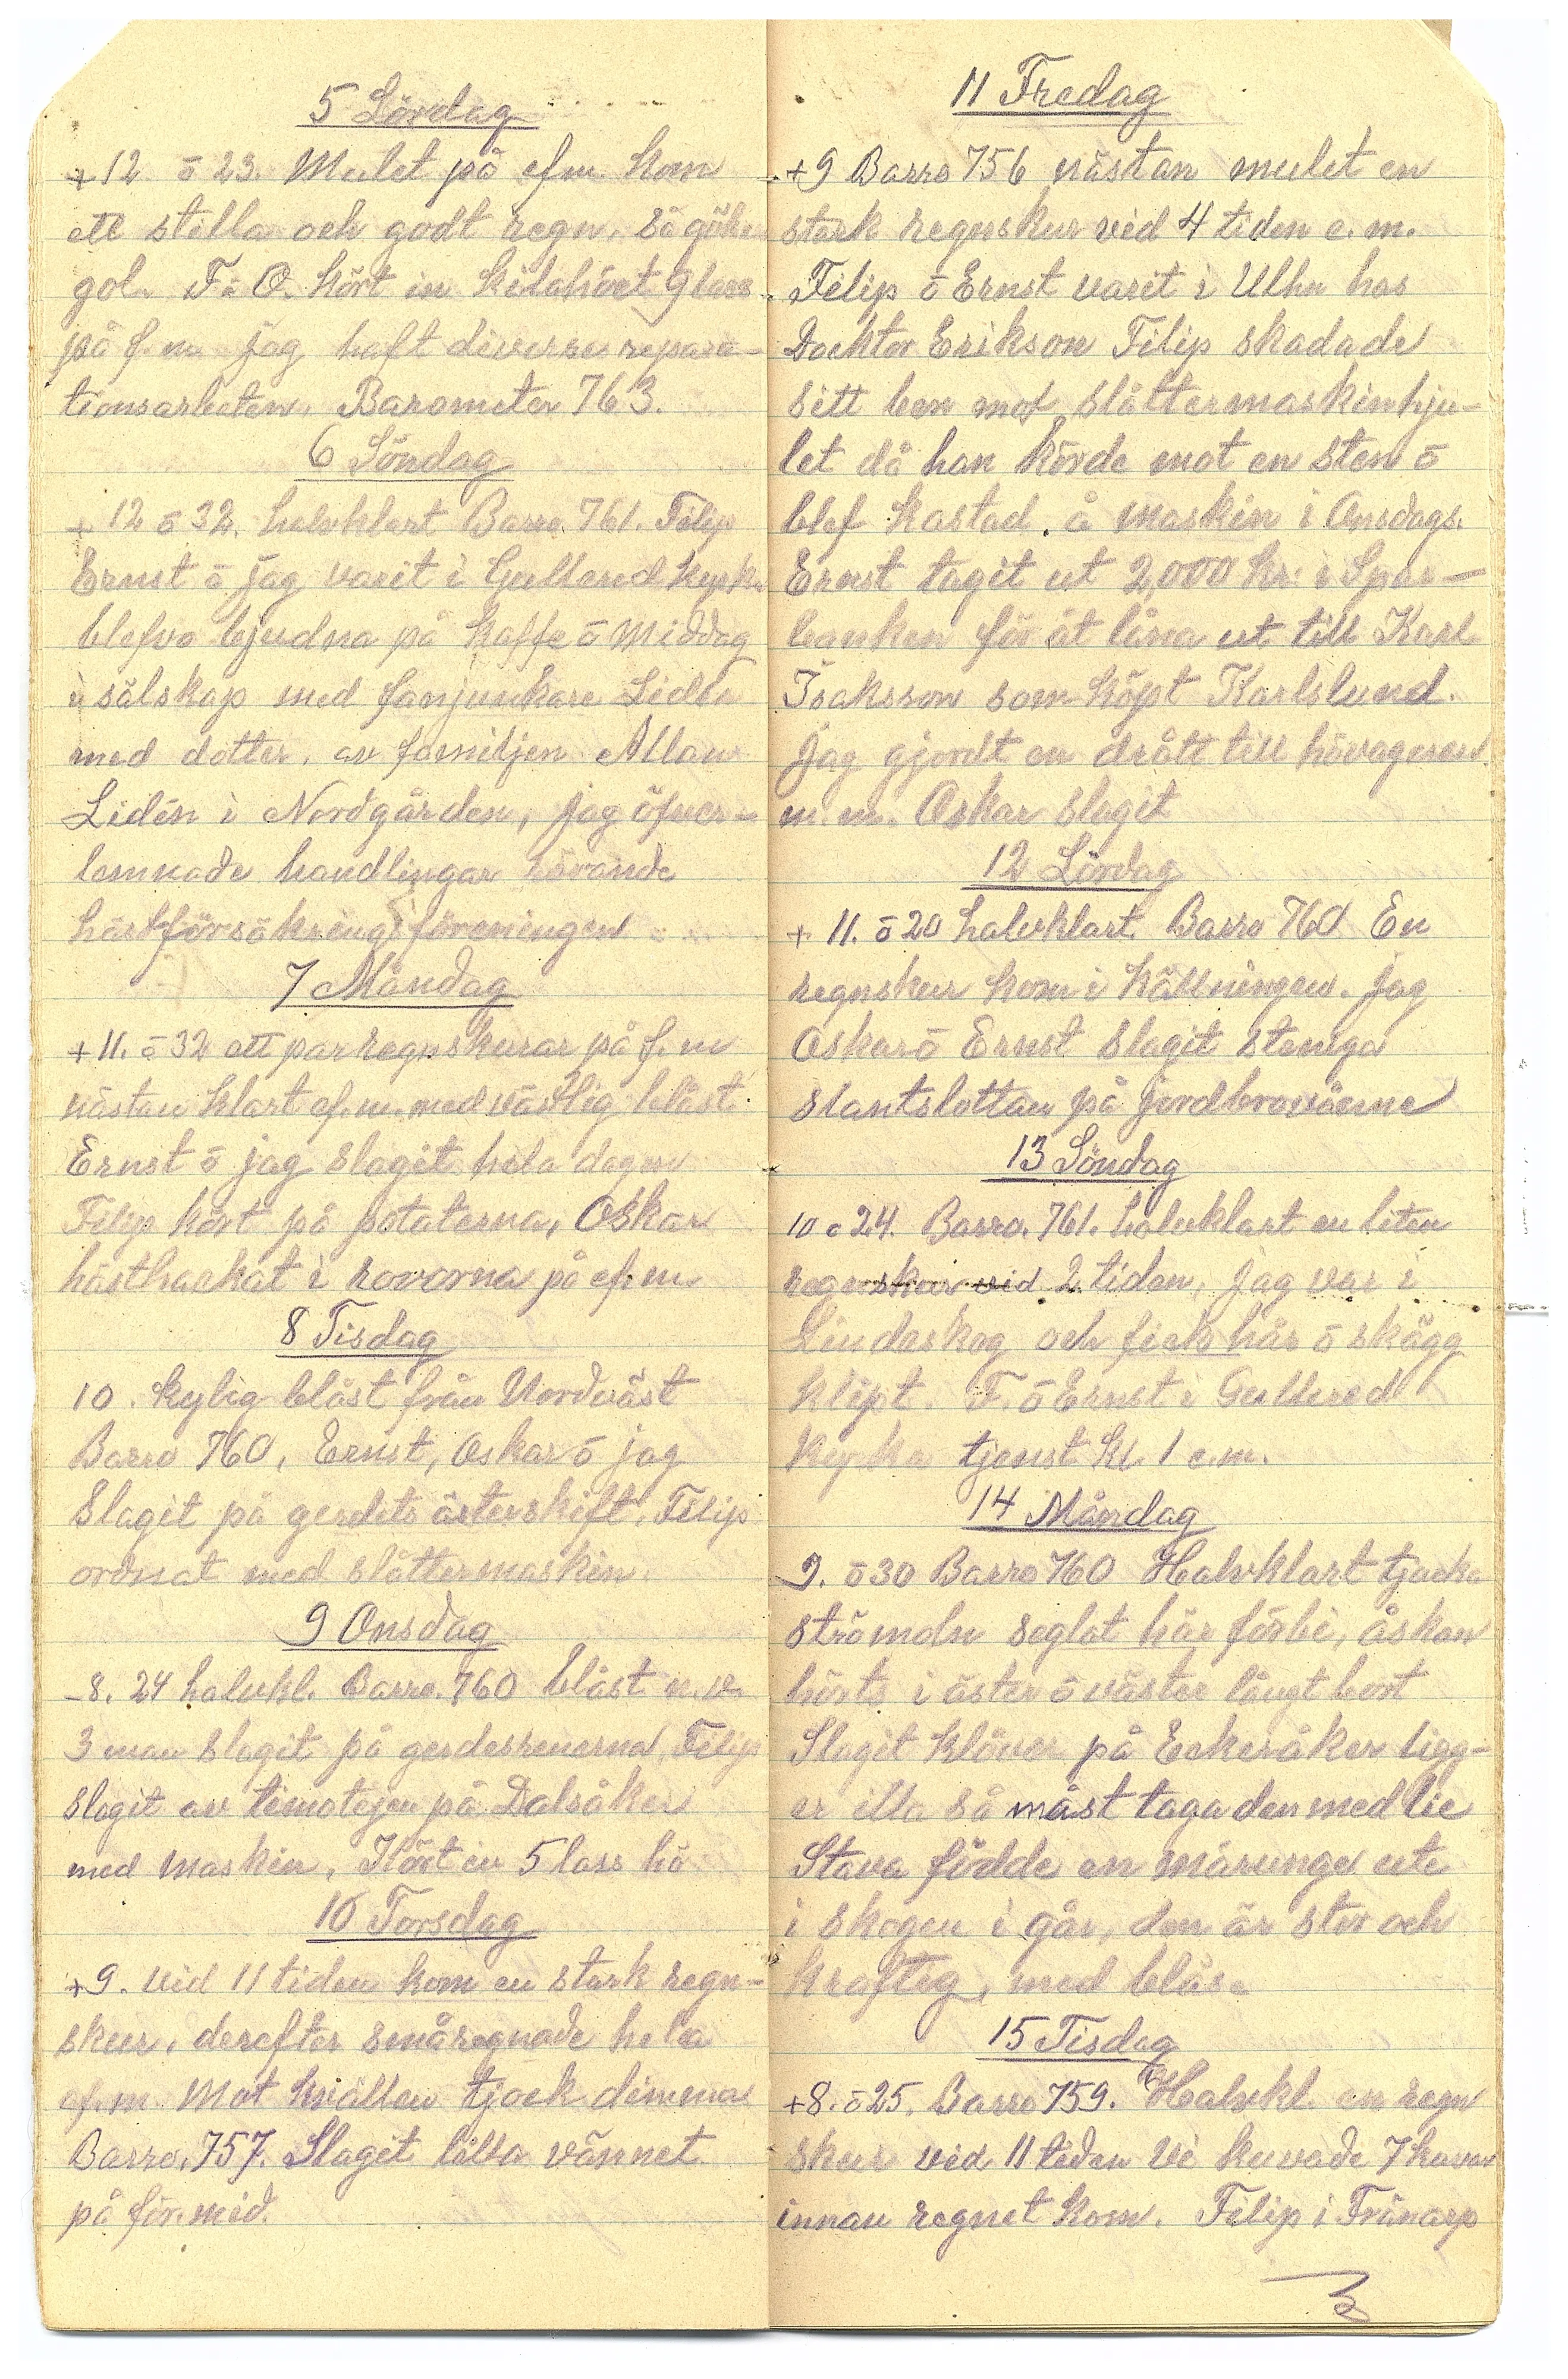 5 Lördag
+12 ö 23. Mulet på efm. kom
ett stilla och godt regn, så gök
gol. F ö O. kört in 9 lass
på f.m jag haft diverse repara-
tionsarbeten. Barometer 763.
6 Söndag
+12 ö 32. halvklart Barro. 761. Filip
Ernst ö jag varit i Gullered kyrk.
blefvo bjudna på kaffe ö middag
i sälskap med fanjunkare Lidén
med dotter, av familjen Allan
Lidén i Nordgården, jag öfver-
lemnade handlingar rörande
hästförsäkringsföreningen
7 Måndag
+11. ö 32 ett par regnskurar på f.m
nästan klart ef.m. med västlig blåst
Ernst ö jag slagit hela dagen
Filip kört på potaterna, Oskar
hästhackat i rovorna på ef.m
8 Tisdag
10. kylig blåst från Nordväst
Barro 760, Ernst, Oskar ö jag
slagit på gerdets österskift. Filip
ordnat med slåttermaskin.
9 Onsdag
-8. 24 halvkl. Barro. 760 blåst n.v.
3 man slagit på gerdesrenerna, Filip
slagit av timotejen på Dalsåker
med maskin, Kört in 5 lass hö
10 Torsdag
+9. vid 11 tiden kom en stark regn-
skur, derefter småregnade hela
ef.m. Mot kvällen tjock dimma
Barro. 757. Slagit lilla vännet
på för.mid.
11 Fredag
+9 Barro 756 nästan mulet en
stark regnskur vid 4 tiden e.m.
Filip ö Ernst varit i Ulhn hos
Docktor Erikson Filip skadade
sitt ben mot slåttermaskinhju-
let då han körde mot en sten ö
blef kastad å maskin i Onsdags.
Ernst tagit ut 2,000 kr. i Spar-
banken för åt låna ut till Karl
Isaksson som köpt Karlslund.
Jag gjordt en drått till hövagnen
m.m. Oskar slagit
12 Lördag
+ 11. ö 20 halvklart Barro 760 En
regnskur kom i kvällningen. Jag
Oskar ö Ernst slagit steniga
slantslottan på jordbrovåerne
13 Söndag
10 ö 24. Barro. 761. halvklart en liten
regnskur vid 2 tiden, jag var i
Lindaskog och fick hår ö skägg
klipt. F. ö Ernst i Gullered
kyrka tjenst kl. 1 e.m.
14 Måndag
9. ö 30 Barro 760 Halvklart tjocka
strömoln seglat här förbi, åskan
hörts i öster ö väster långt bort
Slagit klöver på Ekeråker ligg-
er illa så måst taga den med lie
Stava födde en märunge ute
i skogen i går, den är stor och
kraftig, med bläs.
15 Tisdag
+8. ö 25. Barro 759. Halvkl. en regn
skur vid 11 tiden Vi kuvade 7 kuvar
innan regnet kom. Filip i Fränarp